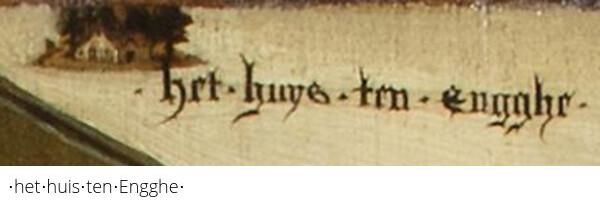 ·het·huys·ten·engghe·
·het·huis·ten·Engghe·